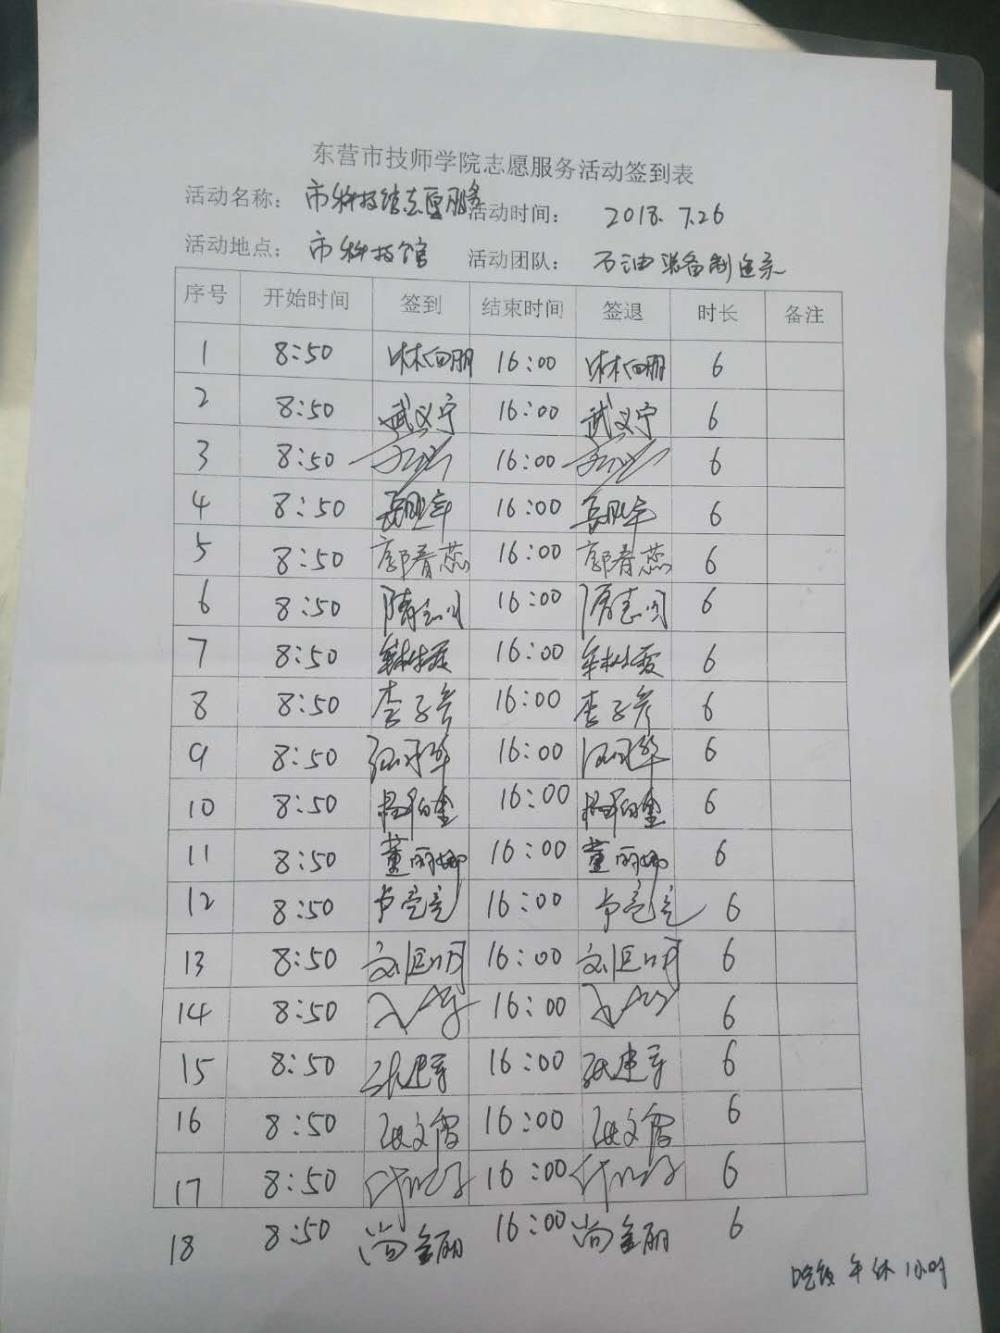 东营市技师学院志愿服务活动签到表
活动名称: 市科技馆志愿服务 活动时间: 2018.7.26
活动地点: 市科技馆 活动团队: 石油装备制造系
序号 开始时间 签到 结束时间 签退 时长 备注
1 8:50 16:00 6
2 8:50 武义宁 16:00 武义宁 6
3 8:50 16:00 6
4 8:50 16:00 6
5 8:50 郭春蕊 16:00 郭春蕊 6
6 8:50 16:00 6
7 8:50 16:00 6
8 8:50 李子彦 16:00 李子彦 6
9 8:50 16:00 6
10 8:50 16:00 6
11 8:50 董丽娜 16:00 董丽娜 6
12 8:50 卢亮亮 16:00 卢亮亮 6
13 8:50 16:00 6
14 8:50 16:00 6
15 8:50 张建军 16:00 张建军 6
16 8:50 张文雷 16:00 张文雷 6
17 8:50 16:00 6
18 8:50 尚金丽 16:00 尚金丽 6
吃饭 午休 1小时